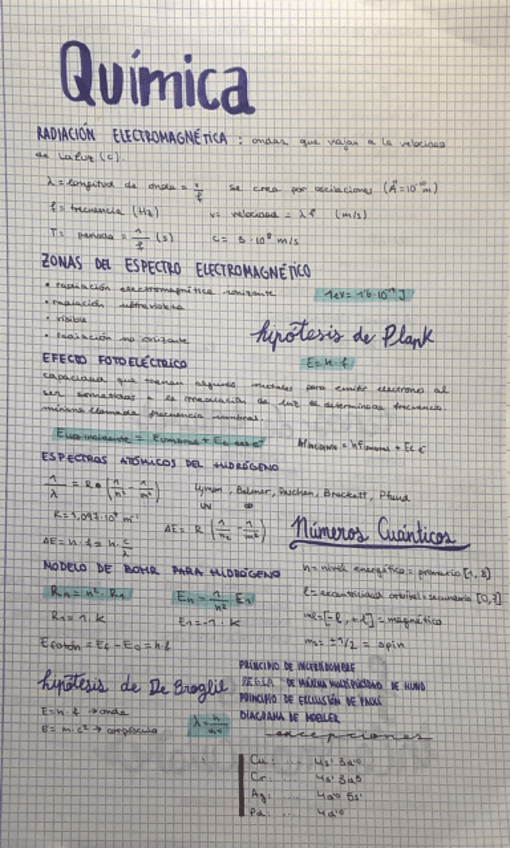 Química
RADIACIÓN ELECTROMAGNÉTICA : ondas que viajan a la velocidad
de la luz (c).
λ = longitud de onda = v/f se crea por oscilaciones (Å=10⁻¹⁰m)
f = frecuencia (Hz) v = velocidad = λ·f (m/s)
T = periodo = 1/f (s) c = 3·10⁸ m/s
ZONAS DEL ESPECTRO ELECTROMAGNÉTICO
• radiación electromagnética ionizante
1eV = 1'6·10⁻¹⁹ J
• radiación ultravioleta
• visible
• radiación no ionizante
hipótesis de Plank
E = h·f
EFECTO FOTOELÉCTRICO
capacidad que tienen algunos metales para emitir electrones al
ser sometidos a la irradiación de luz de determinada frecuencia
mínima llamada frecuencia umbral.
E luz incidente = E umbral + Ec del e⁻
hf incidente = hf umbral + Ec e⁻
ESPECTROS ATÓMICOS DEL HIDRÓGENO
1/λ = R·(1/n² - 1/m²) Lyman, Balmer, Paschen, Brackett, Pfund
UV
R = 1,097·10⁷ m⁻¹ ΔE = R (1/n₂ - 1/m²)
Números Cuánticos
ΔE = h·f = h·c/λ
MODELO DE BOHR PARA HIDRÓGENO
n = nivel energético = primario [1, 8]
Rn = n²·R₁ En = 1/n² E₁
l = excentricidad orbital = secundario [0,3]
R₁ = 1·K E₁ = -1·K
ml = [-l, +l] = magnético
E fotón = Ef - E₀ = h·f
m = ±1/2 = spin
PRINCIPIO DE INCERTIDUMBRE
hipótesis de De Broglie
REGLA DE MÁXIMA MULTIPLICIDAD DE HUND
PRINCIPIO DE EXCLUSIÓN DE PAULI
E = h·f → onda
DIAGRAMA DE MOELLER
E = m·c² → corpúsculo
excepciones
Cu: .... 4s¹ 3d¹⁰
Cr: .... 4s¹ 3d⁵
Ag: .... 4d¹⁰ 5s¹
Pd: .... 4d¹⁰